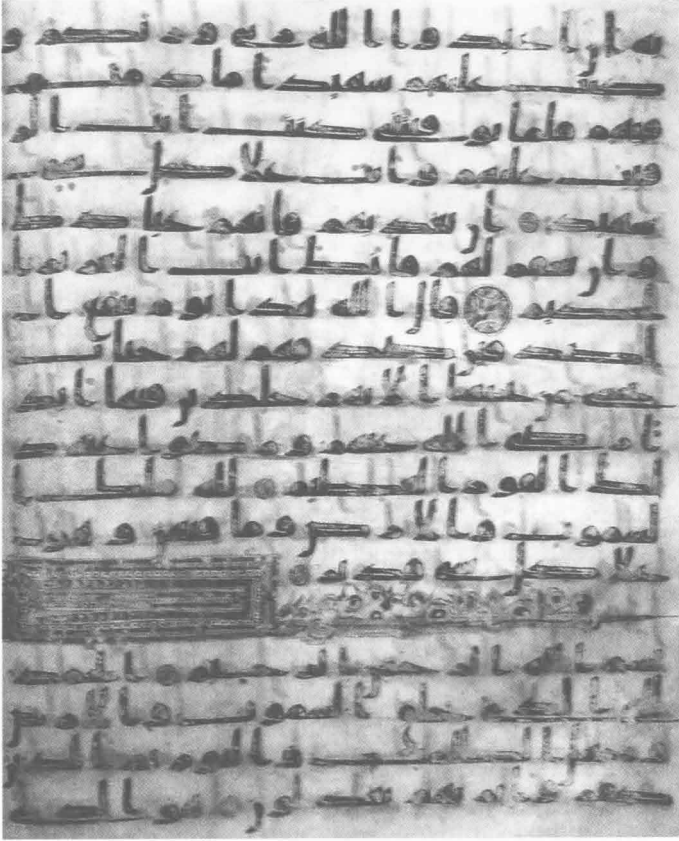 به ان اعبدوا الله ربي وربكم و
كنت عليهم شهيدا ما دمت
فيهم فلما توفيتني كنت انت ال
رقيب عليهم وانت على كل شي
شهيد ان تعذبهم فانهم عبادك
وان تغفر لهم فانك انت العزيز ا
لحكيم قال الله هذا يوم ينفع ا
لصدقين صدقهم لهم جنت
تجري من تحتها الانهر خلدين فيها ا
بدا رضي الله عنهم ورضوا عنه ذ
لك الفوز العظيم لله ملك ا
لسموت والارض وما فيهن وهو
على كل شي قدير
بسم الله الرحمن الرحيم الحمد
لله الذي خلق السموت والارض
وجعل الظلمت والنور ثم الذين
كفروا بربهم يعدلون هو الذي